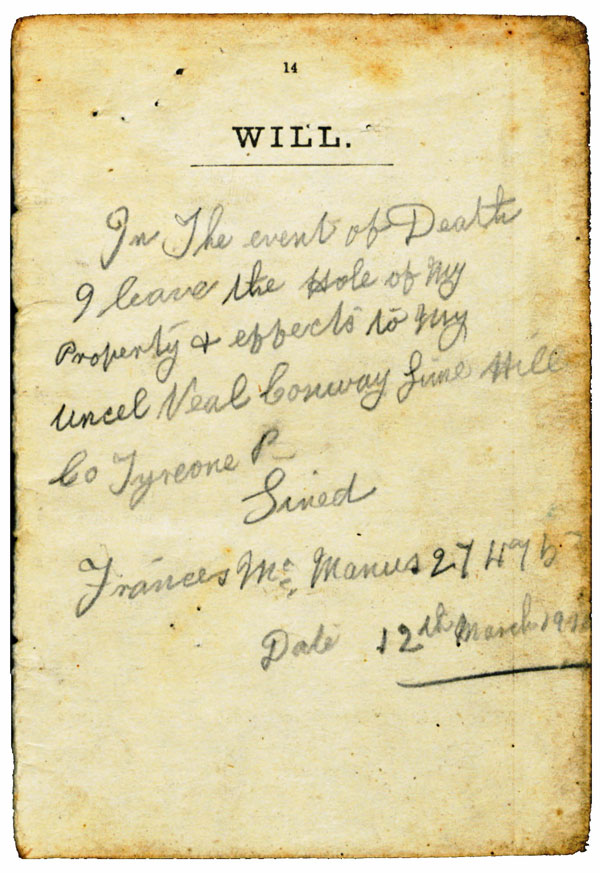 14
WILL.
In The event of Death
I leave the Hole of My
Property & effects to My
Uncel Neal Conway Hill
Co Tyreone
Sined
Frances Mc Manus
Date 12th March